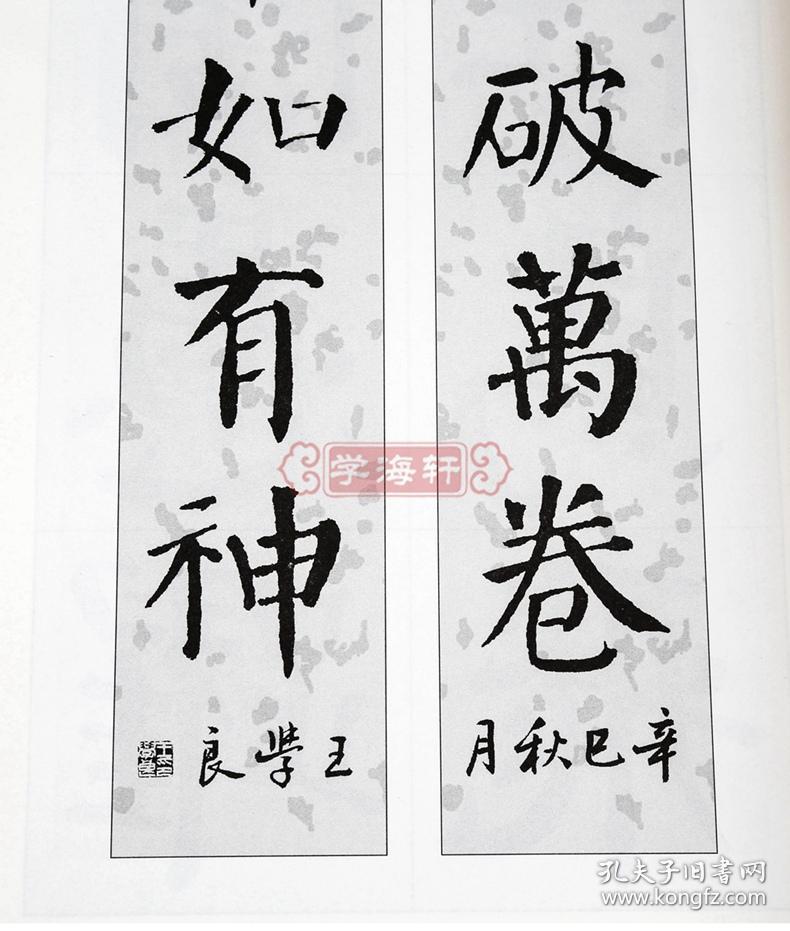 破萬卷
辛巳秋月
如有神
王學良
学海轩
孔夫子旧书网
www.kongfz.com